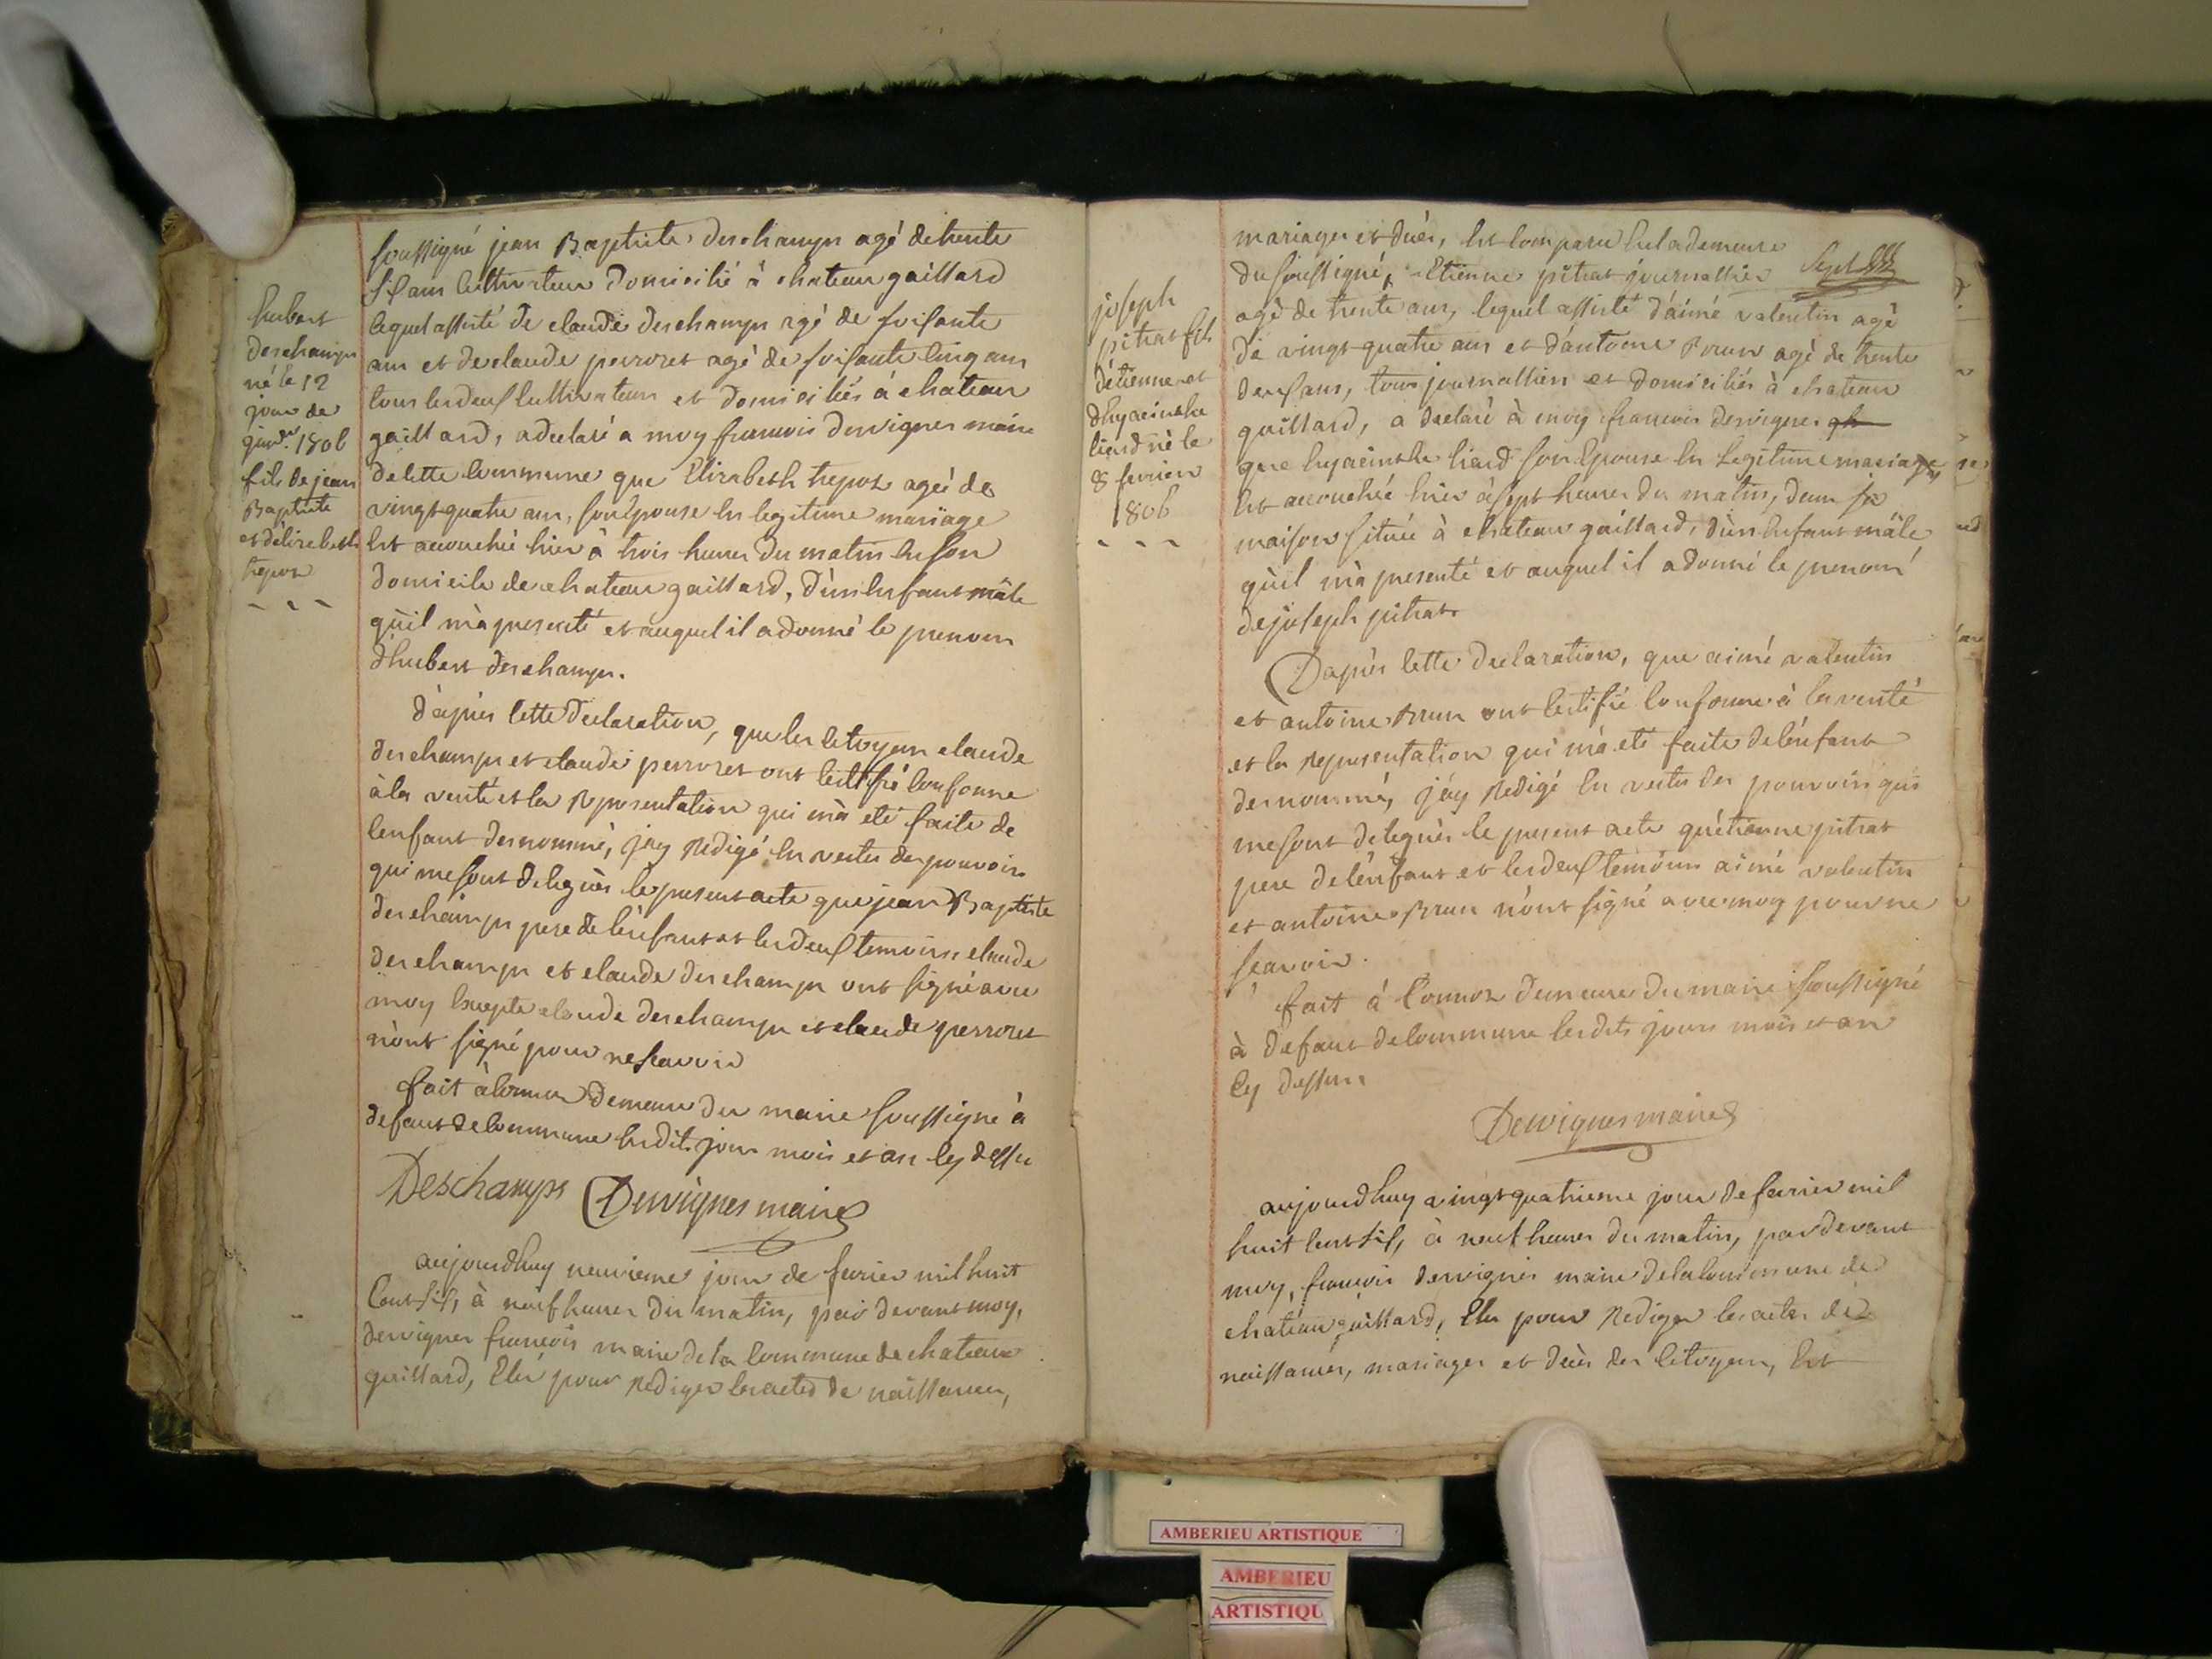 hubert
deschamps
né le 12
jour de
janv.er 1806
fils de jean
Baptiste
et d'élizabeth
trepoz
soussigné jean Baptiste deschamps agé detrente
six ans cultivateur domicilié à chateau gaillard
lequel assisté de claude deschamps agé de soisante
ans et declaude perrozet agé de soisante cinq ans
tous lesdeux cultivateurs et domiciliés à chateau
gaillard, a declaré a moy francois desvignes maire
decette commune que Elizabeth trepoz ageé de
vingt quatre ans, son epouse en legitime mariage
est accouchée hier à trois heures du matin en son
domicile de chateau gaillard, d'un enfant mâle
qu'il m'a presenté et auquel il adonné le prenom
d'hubert deschamps.
d'après cette declaration, que les citoyens claude
deschamps et claude perrozet ont certifié conforme
à la verité et la representation qui m'a eté faite de
lenfant denommé, j'ay redigé en vertu des pouvoirs
qui me sont delegués le present acte que jean Baptiste
deschamps pere de l'enfant et lesdeux temoins claude
deschamps et claude deschamps ont signé avec
moy excepte claude deschamps et claude perrozet
n'ont signé pour nescavoir
fait à cormoz demeure du maire soussigné à
defaut de commune lesdits jour mois et an cy dessu
Deschamps Desvignes maire
aujourdhuy neuvieme jour de fevrier mil huit
cent six, à neuf heures du matin, par devant moy,
desvignes francois maire dela commune de chateau
gaillard, Elu pour rediger les actes de naissances,
joseph
pitrat fils
d'etienne et
dhyacinthe
liard né le
8 fevrier
1806
mariages et décès, est comparu en la demeure
du soussigné, Etienne pitrat journallier
agé de trente ans, lequel assisté d'aimé valentin agé
de vingt quatre ans et d'antoine Brun agé de trente
deux ans, tous journalliers et domiciliés à chateau
gaillard, a declaré à moy francois desvignes
que hyacinthe liard son epouse en legitime mariage
est accouchée hier à sept heures du matin, dans sa
maison située à chateau gaillard, d'un enfant mâle
qu'il m'a presenté et auquel il adonné le prenom
de joseph pitrat
Dapres cette declaration, que aimé valentin
et antoine Brun ont certifié conforme à la verité
et la representation qui m'a eté faite del'enfant
denommé, j'ay redigé en vertu des pouvoirs qui
me sont delegués le present acte qu'etienne pitrat
pere del'enfant et lesdeux temoins aimé valentin
et antoine Brun n'ont signé avec moy pour ne
scavoir.
fait à Cormoz demeure du maire soussigné
à defaut de commune lesdits jours mois et an
cy dessus
Desvignes maire
aujourdhuy vingt quatrieme jour de fevrier mil
huit cent six, à neuf heures du matin, pardevant
moy, francois desvignes maire delacommune de
chateau gaillard, Elu pour rediger les actes de
naissances, mariages et décès des citoyens, Est
AMBERIEU ARTISTIQUE
AMBERIEU
ARTISTIQU